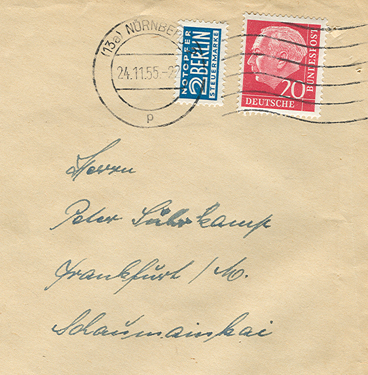 (13a) NÜRNBE
24.11.55.-22
p
NOTOPFER
2 BERLIN
STEUERMARKE
20
DEUTSCHE
BUNDESPOST
Herrn
Peter Suhrkamp
Frankfurt / M.
Schaumainkai